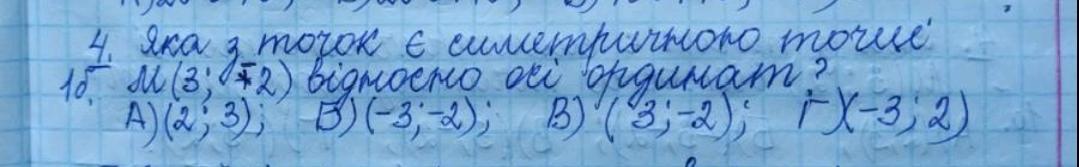 4. Яка з точок є симетричною точці
1б. М(3; -2) відносно осі ординат?
А)(2; 3); Б)(-3;-2); В) (3;-2); Г)(-3; 2)